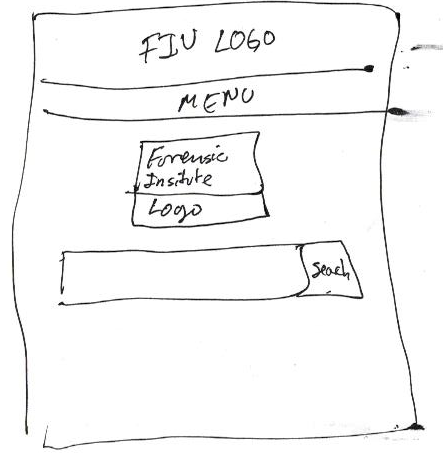 FIU LOGO
MENU
Forensic
Insitute
Logo
Seach